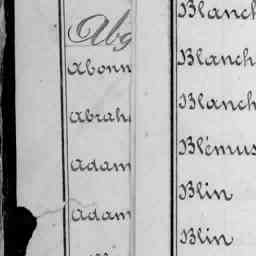 Abg
Abonn
Abrah
Adam
Adam
Blanch
Blanch
Blanch
Blémus
Blin
Blin